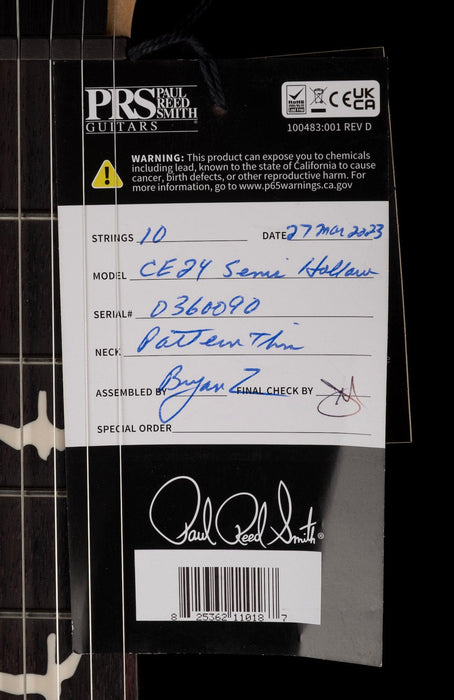 PRS PAUL REED SMITH
GUITARS
RoHS CE UK CA
100483:001 REV D
WARNING: This product can expose you to chemicals
including lead, known to the state of California to cause
cancer, birth defects, or other reproductive harm. For
more information, go to www.p65warnings.ca.gov
STRINGS 10 DATE 27 Mar 2023
MODEL CE24 Semi Hollow
SERIAL# 0360090
NECK Pattern Thin
ASSEMBLED BY Bryan Z FINAL CHECK BY
SPECIAL ORDER
Paul Reed Smith®
8 25362 11018 7